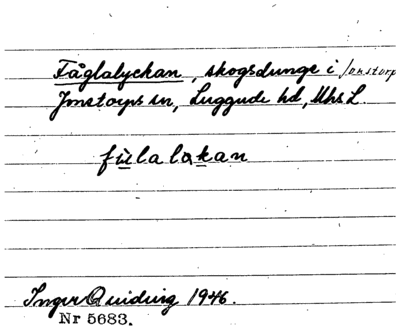 Fåglalyckan, skogsdunge i Jonstorp
Jonstorps sn, Luggude hd, Mhs L.
fùlalɑkan
Inger Quiding 1946.
Nr 5683.